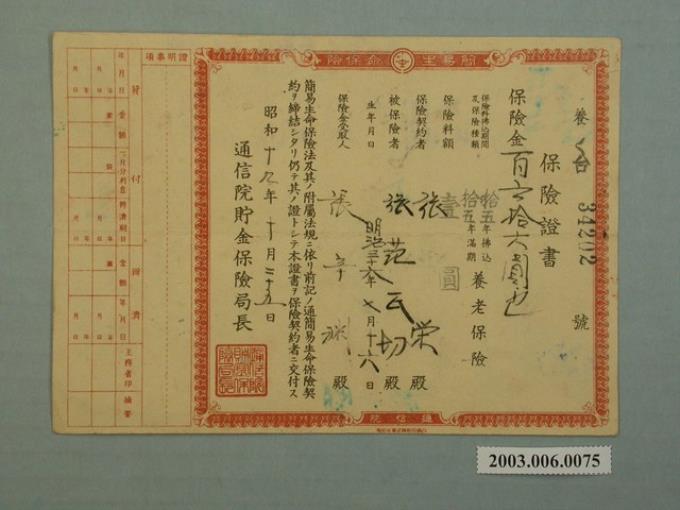 簡易生命保險
養 台 34202 號
保險證書
保險金 百六拾六圓也
保險料拂込期間及保險種類 拾五年拂込 拾五年滿期 養老保險
保險料額 壹圓
保險契約者 張 榮 殿
被保險者 張范氏切 殿
生年月日 明治三十六年七月十六日
保險金受取人 張 殿
簡易生命保險法及其ノ附屬法規ニ依リ前記ノ通簡易生命保險契
約ヲ締結シタリ仍テ其ノ證トシテ本證書ヲ保險契約者ニ交付ス
昭和十九年十月二十五日
遞信院貯金保險局長
遞信院
證明事項
貸付
年月日
金額
辨濟
金額
年月日
主務者印
摘要
2003.006.0075